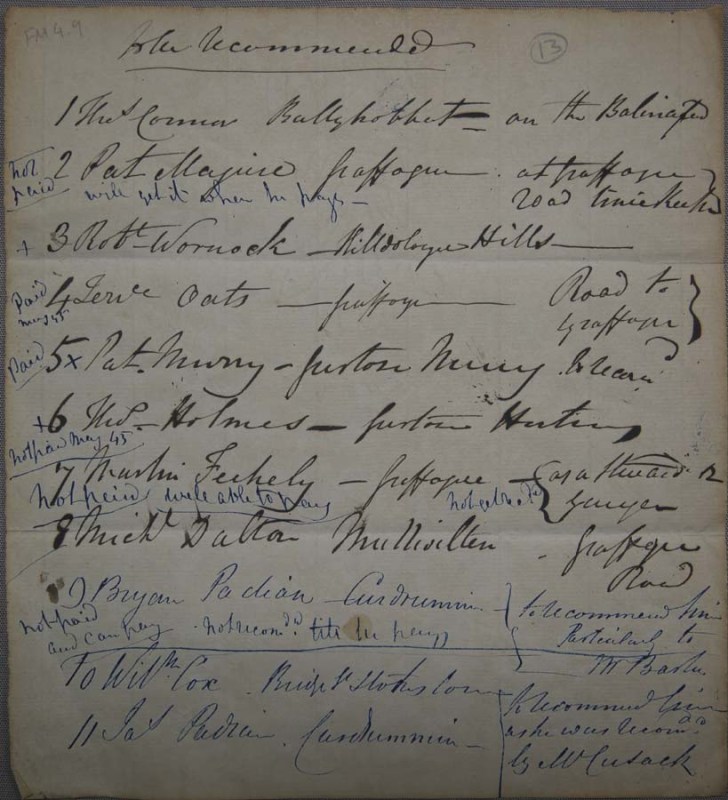 FM 4.9
to be recommended
13
1 Thos Connor Ballyhobbet = on the
not paid
2 Pat Maguire Graffogue at Graffogue road timekeeper
will get it when he pays -
+ 3 Robt Wornock - Hills
Paid May 45
4 Oats - Graffogue - Road to Graffogue
Paid
5 + Pat Murry - Murry
+ 6 Thos - Holmes -
not paid May 45
7 Martin Feehely - Graffogue - as a Steward or Ganger
not paid well able to pay
8 Michl Dalton Mullivilten - Graffogue Road
9 Bryan Padian - Curdrummin - to recommend him particularly to Mr
not paid and can pay not recomd. till he pays
10 Willm Cox Bridget
to recommend him as he was recomd. by Mr Cusack
11 Jas Padian Curdrummin -